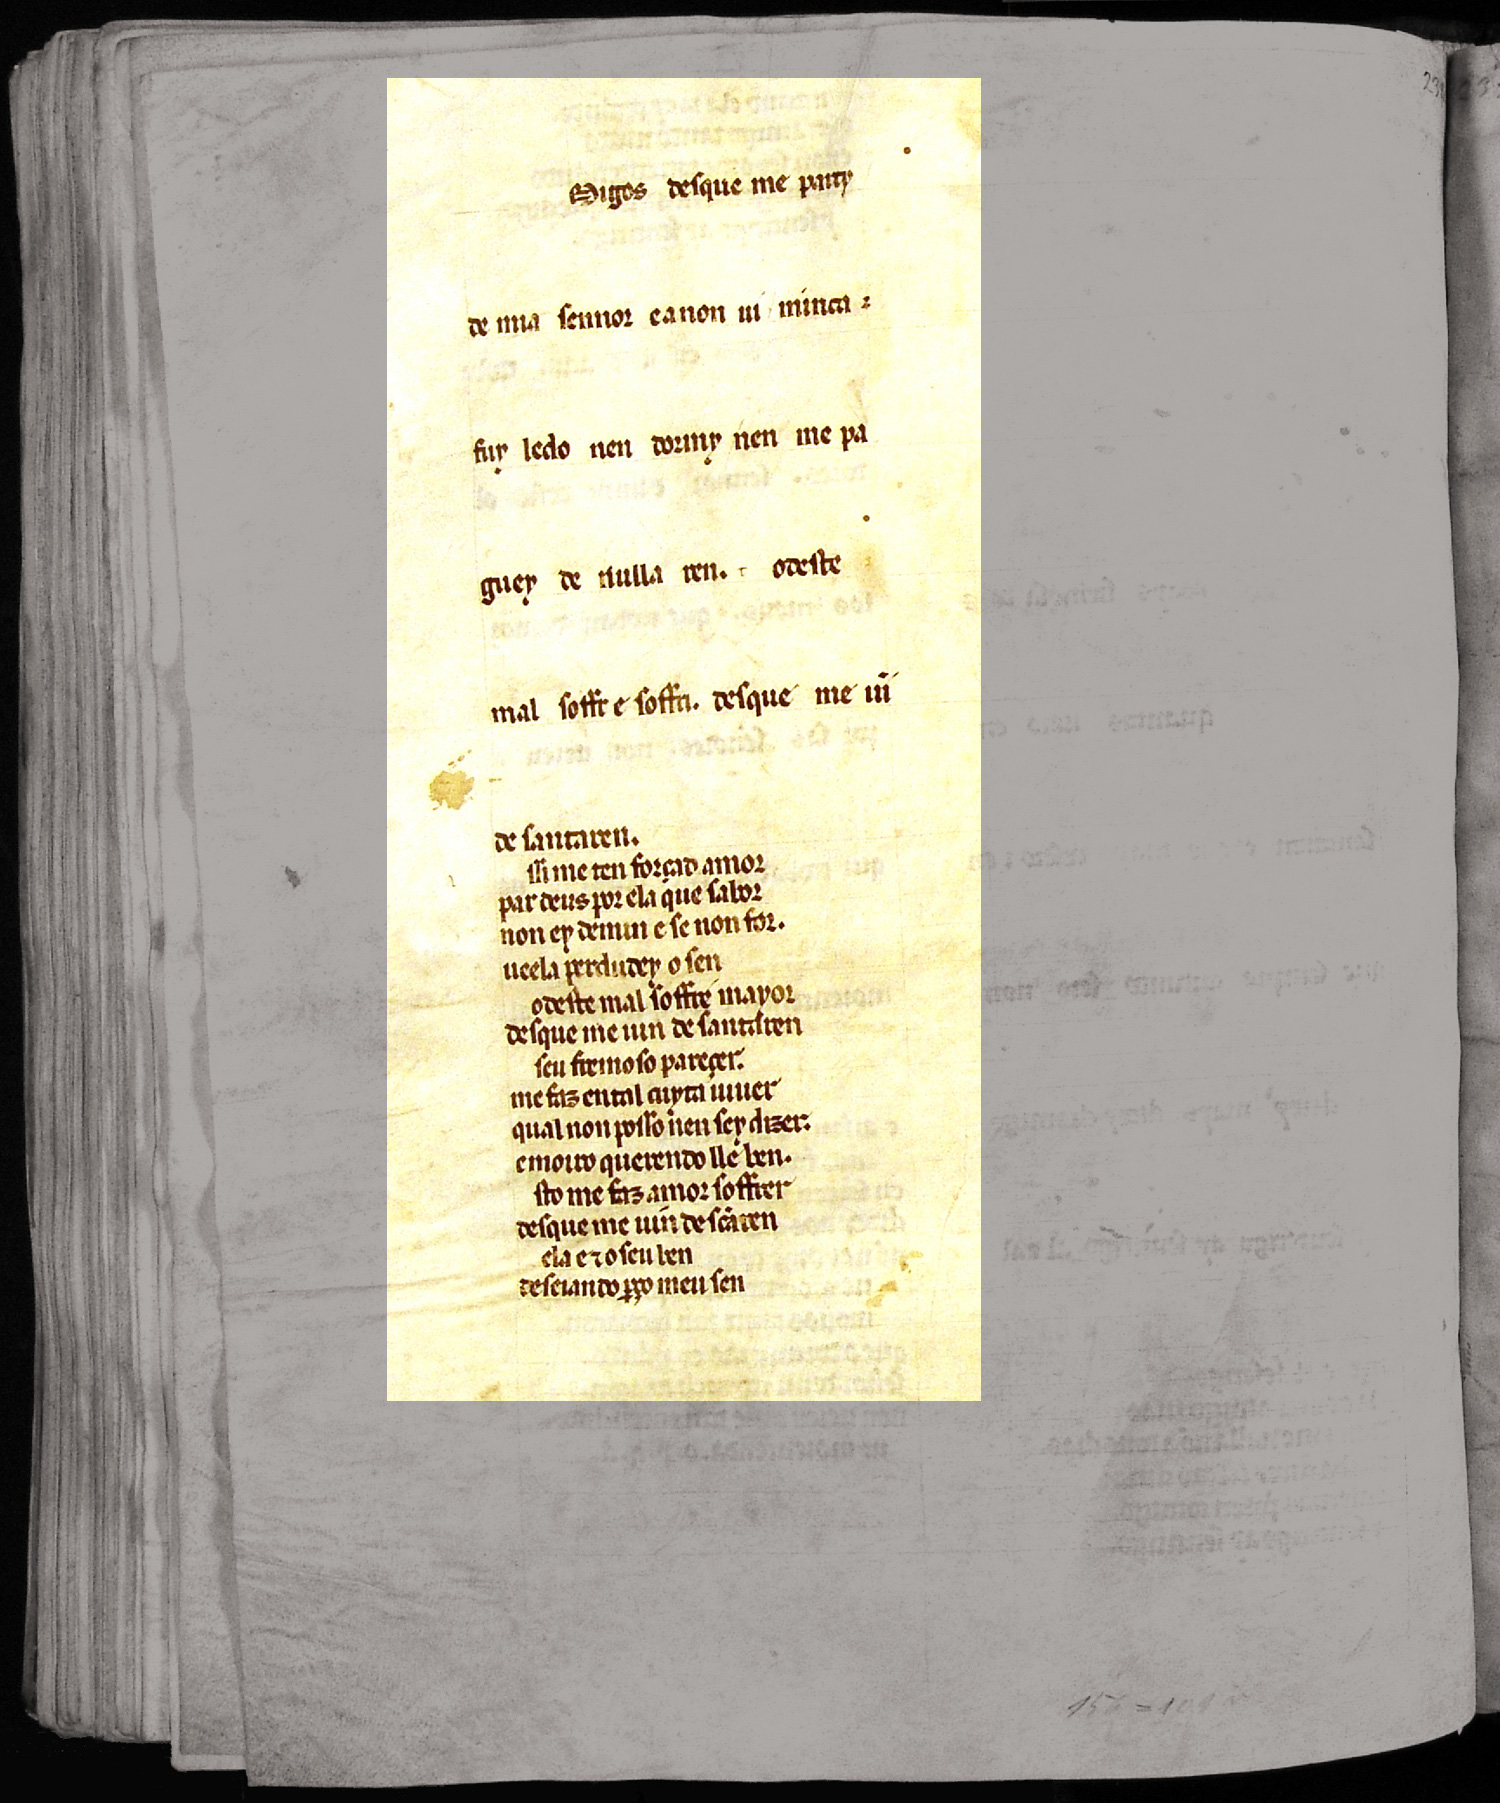 Migos desque me party
de mia sennor e a non ui nunca
fuy ledo nen dormy nen me pa
guey de nulla ren. odeste
mal soffr e soffri. desque me uῖ
de santaren.
ssi me ten forçad amor
par deus por ela que sabor
non ey demin e se non for.
ueela perdudey o sen
odeste mal soffre mayor
desque me uin de santaren
seu fremoso pareçer.
me faz en tal cuyta uiuer
qual non posso nen sey dizer.
e moiro querendo lle ben.
sto me faz amor soffrer
desque me uin de sãaren
ela e o seu ben
deseiando meu sen